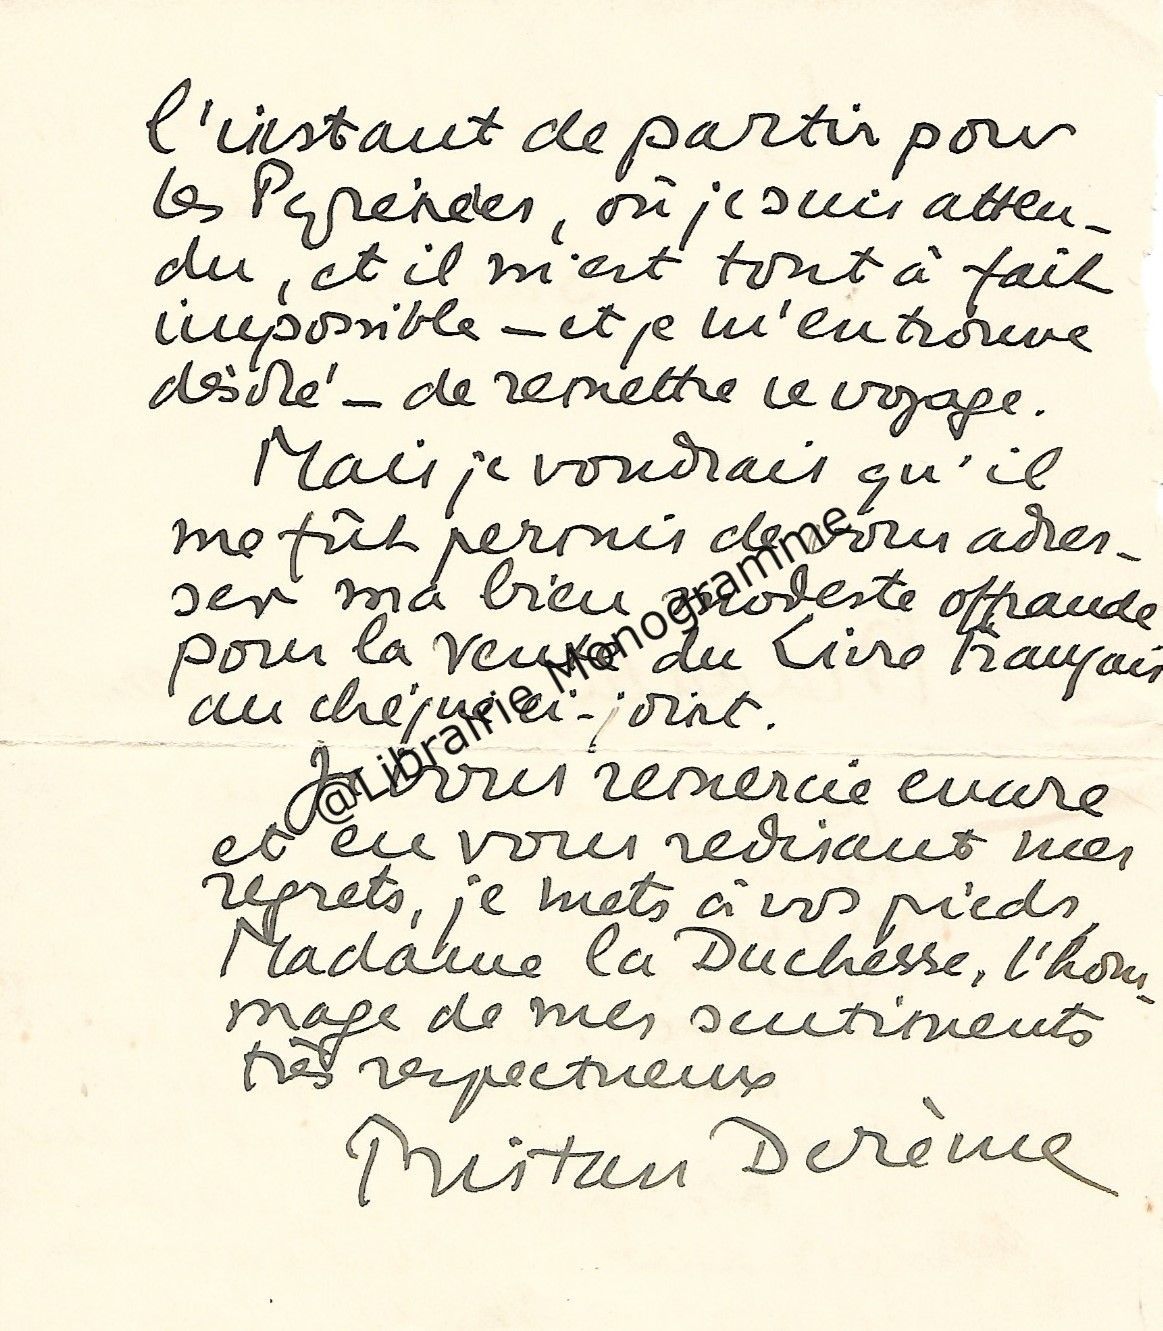 l'instant de partir pour
les Pyrénées, où je suis atten-
du, et il m'est tout à fait
impossible – et je m'en trouve
désolé – de remettre ce voyage.
Mais je voudrais qu'il
me fût permis de vous adres-
ser ma bien modeste offrande
pour la vente du Livre Français
au chèque ci-joint.
Je vous remercie encore
et en vous redisant mes
regrets, je mets à vos pieds,
Madame la Duchesse, l'hom-
mage de mes sentiments
très respectueux
Tristan Derème
@Librairie Monogramme